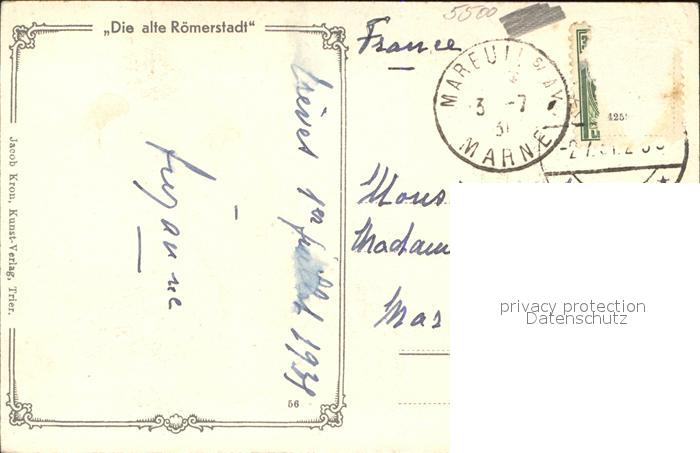 „Die alte Römerstadt“
5500
France
MAREUIL S/ AY
3 -7
31
MARNE
425
Trèves 1er juillet 1931
Suzanne
Mons
Madam
Mar
Jacob Kron, Kunst-Verlag, Trier.
56
privacy protection
Datenschutz